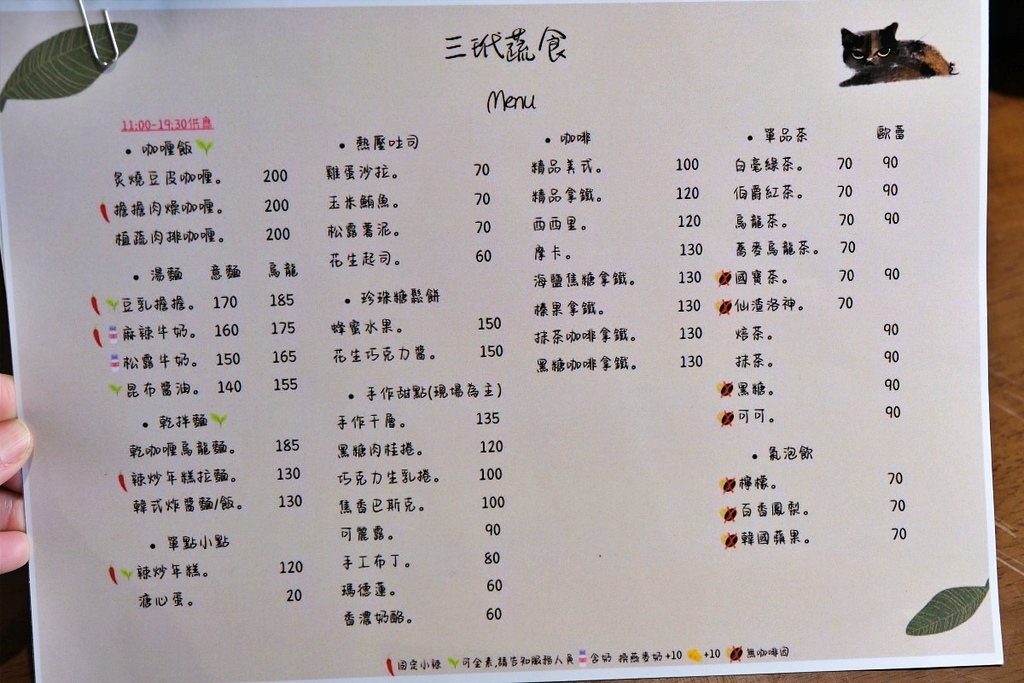 三玳蔬食
Menu
11:00-19:30供應
• 咖喱飯
炙燒豆皮咖喱。 200
擔擔肉燥咖喱。 200
植蔬肉排咖喱。 200
• 湯麵 意麵 烏龍
豆乳擔擔。 170 185
麻辣牛奶。 160 175
松露牛奶。 150 165
昆布醬油。 140 155
• 乾拌麵
乾咖喱烏龍麵。 185
辣炒年糕拉麵。 130
韓式炸醬麵/飯。 130
• 單點小點
辣炒年糕。 120
溏心蛋。 20
• 熱壓吐司
雞蛋沙拉。 70
玉米鮪魚。 70
松露薯泥。 70
花生起司。 60
• 珍珠糖鬆餅
蜂蜜水果。 150
花生巧克力醬。 150
• 手作甜點(現場為主)
手作千層。 135
黑糖肉桂捲。 120
巧克力生乳捲。 100
焦香巴斯克。 100
可麗露。 90
手工布丁。 80
瑪德蓮。 60
香濃奶酪。 60
• 咖啡
精品美式。 100
精品拿鐵。 120
西西里。 120
摩卡。 130
海鹽焦糖拿鐵。 130
榛果拿鐵。 130
抹茶咖啡拿鐵。 130
黑糖咖啡拿鐵。 130
• 單品茶 歐蕾
白毫綠茶。 70 90
伯爵紅茶。 70 90
烏龍茶。 70 90
蕎麥烏龍茶。 70
國寶茶。 70 90
仙渣洛神。 70
焙茶。 90
抹茶。 90
黑糖。 90
可可。 90
• 氣泡飲
檸檬。 70
百香鳳梨。 70
韓國蘋果。 70
固定小辣 可全素,請告知服務人員 含奶 換燕麥奶+10 +10 無咖啡因